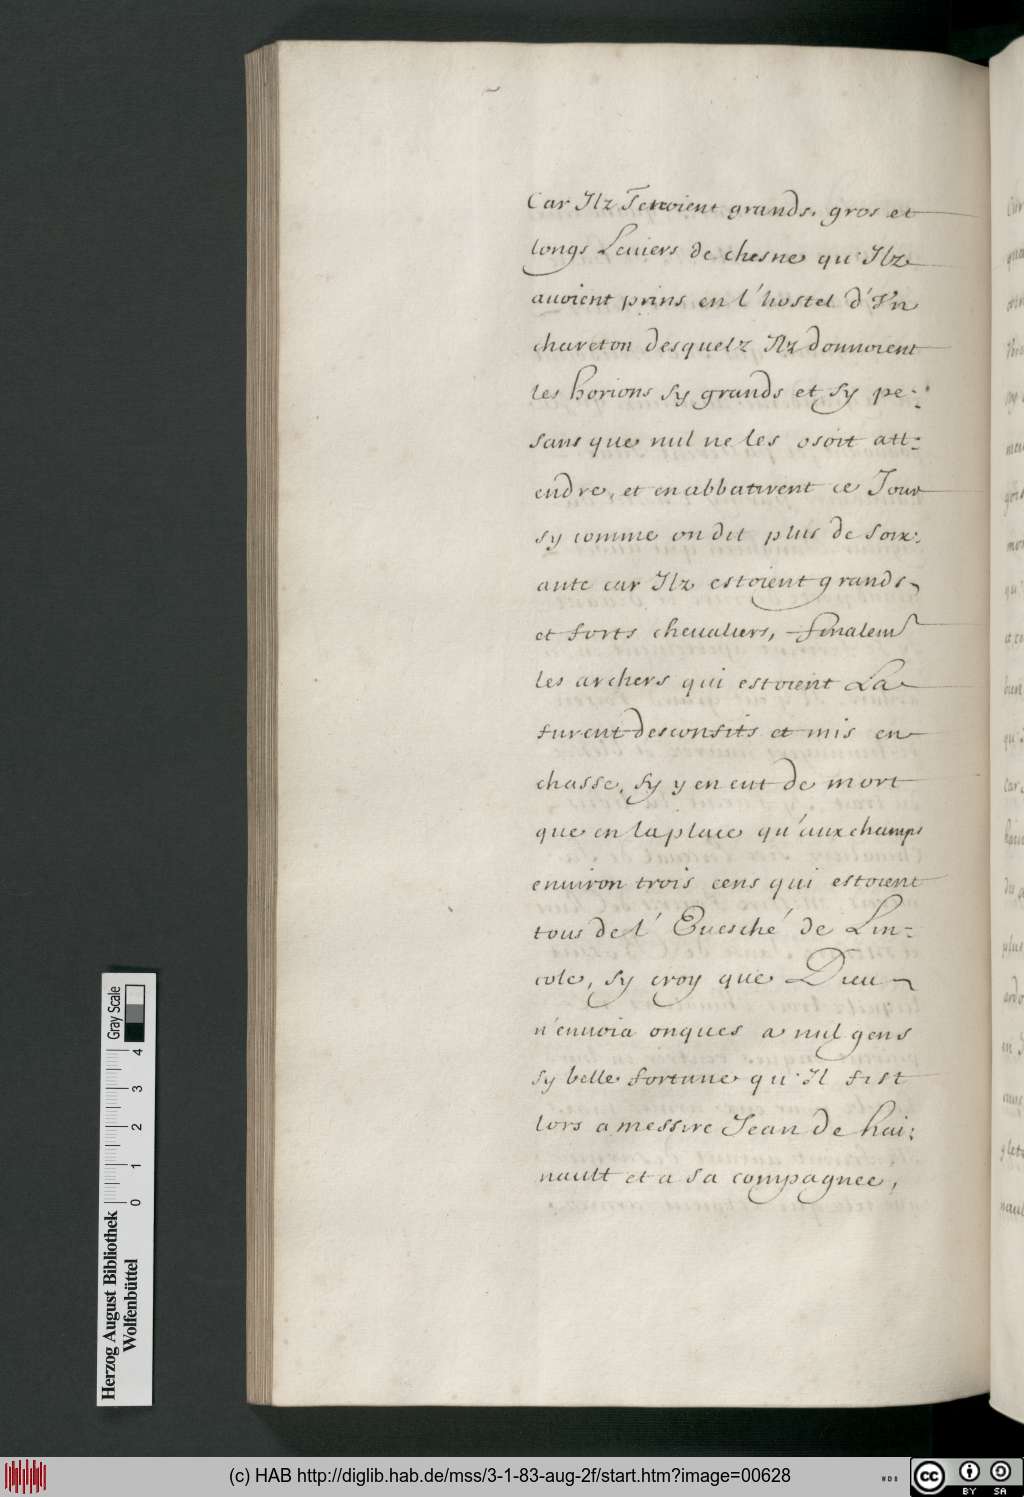 Car Ilz Tenoient grands, gros et
longs Leuiers de chesne qu'Ilz
auoient prins en l'hostel d'Vn
chareton desquelz Ilz donnoient
les horions sy grands et sy pe-
sans que nul ne les osoit att-
endre, et en abbatirent ce Jour
sy comme on dit plus de soix-
ante car Ilz estoient grands
et forts cheualiers, finalemt
les archers qui estoient La
furent desconfits et mis en
chasse, sy y en eut de mort
que en la place qu'aux champs
enuiron trois cens qui estoient
tous de l'Euesché de Lin-
cole, sy croy que Dieu
n'enuoia onques a nul gens
sy belle fortune qu'Il fist
lors a messire Jean de hai-
nault et a sa compagnee,
Herzog August Bibliothek
Wolfenbüttel
0 1 2 3 4
Gray Scale
(c) HAB http://diglib.hab.de/mss/3-1-83-aug-2f/start.htm?image=00628
WDB
CC BY SA